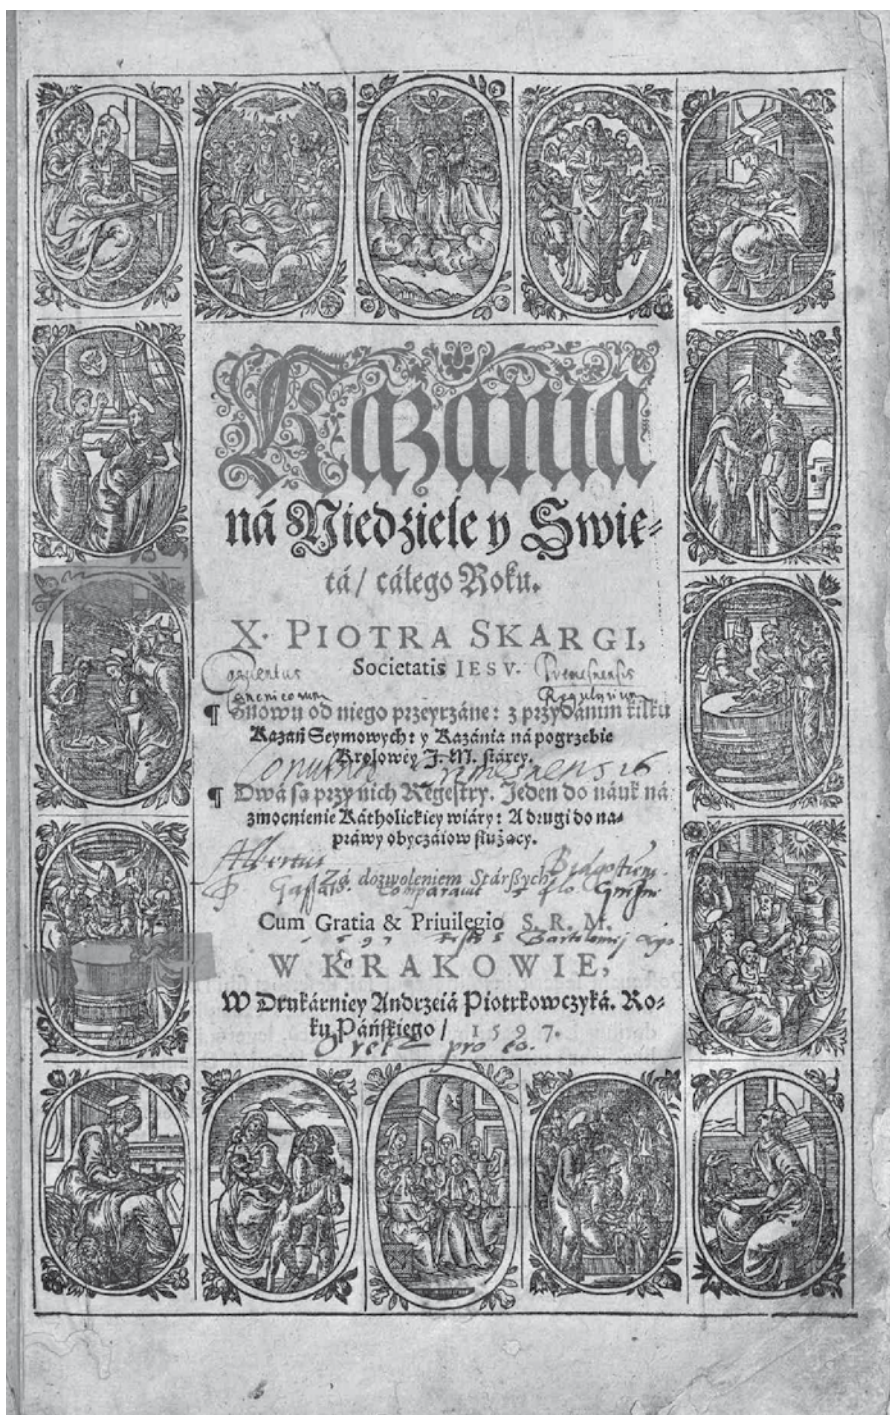 Kazania
ná Niedziele y Swię-
tá / cáłego Roku.
X. PIOTRA SKARGI,
Societatis IESV.
Conuentus Premesnensis
Canonicorum Regularium
¶ Znowu od niego przeyrzáne: z przydánim kilku
Kazań Seymowych: y Kazánia ná pogrzebie
Krolowéy J. M. stárey.
¶ Dwá są przy nich Regestry. Jeden do náuk ná
zmocnienie Kátholickiey wiáry: A drugi do na-
práwy obyczáiow służący.
Albertus
Zá dozwoleniem Stárßych
comparauit
Cum Gratia & Priuilegio S. R. M.
W KRAKOWIE,
W Drukárniey Andrzeiá Piotrkowczyká. Ro-
ku Páńskiego / 1597.
Oretz pro eo.